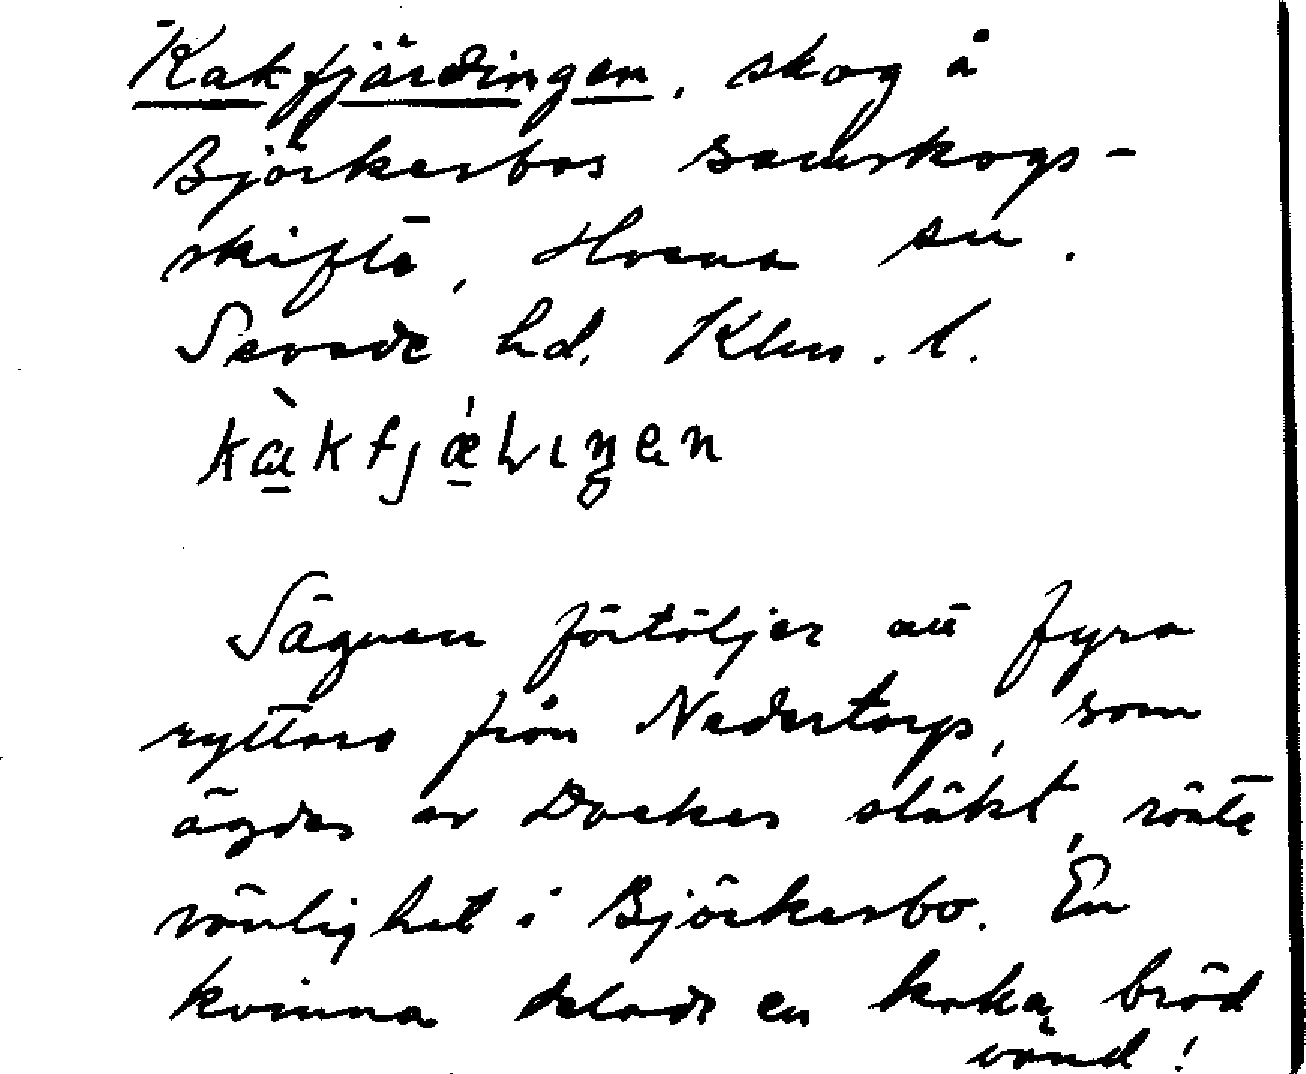 Kakfjärdingen, skog å
Björkerbos samskogs-
skifte, Hvena sn.
Sevede hd. Klm. l.
Sägnen förtäljer att fyra
ryttare från Nedertorp, som
ägdes av Dackes släkt, rönte
vänlighet i Björkerbo. En
kvinna delade en kaka bröd
vänd!